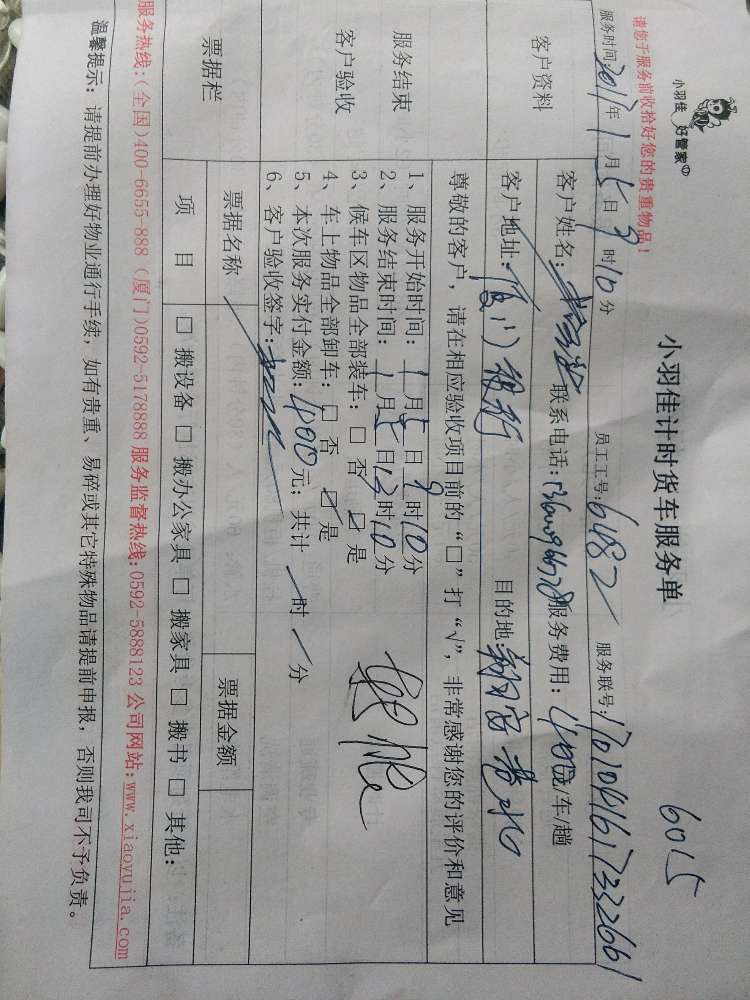 小羽佳 好管家
6015
小羽佳计时货车服务单
请您于服务前收拾好您的贵重物品！
服务时间:2017年1月5日9时10分 员工工号:6482 服务联号:1701041617332661
客户资料
客户姓名: 联系电话: 服务费用: 400元/车/趟
客户地址: 厦门 目的地 翔安
服务结束
客户验收
尊敬的客户，请在相应验收项目前的“□”打“√”，非常感谢您的评价和意见
1、服务开始时间: 1月5日9时10分
2、服务结束时间: 1月5日12时10分
3、候车区物品全部装车: □ 否 ☑ 是
4、车上物品全部卸车: □ 否 ☑ 是
5、本次服务实付金额: 400元; 共计 时 分
6、客户验收签字:
票据栏
票据名称 票据金额
项 目 □ 搬设备 □ 搬办公家具 □ 搬家具 □ 搬书 □ 其他:
服务热线:(全国)400-6655-888 (厦门)0592-5178888 服务监督热线:0592-5888123 公司网站:www.xiaoyujia.com
温馨提示: 请提前办理好物业通行手续，如有贵重、易碎或其它特殊物品请提前申报，否则我司不予负责。